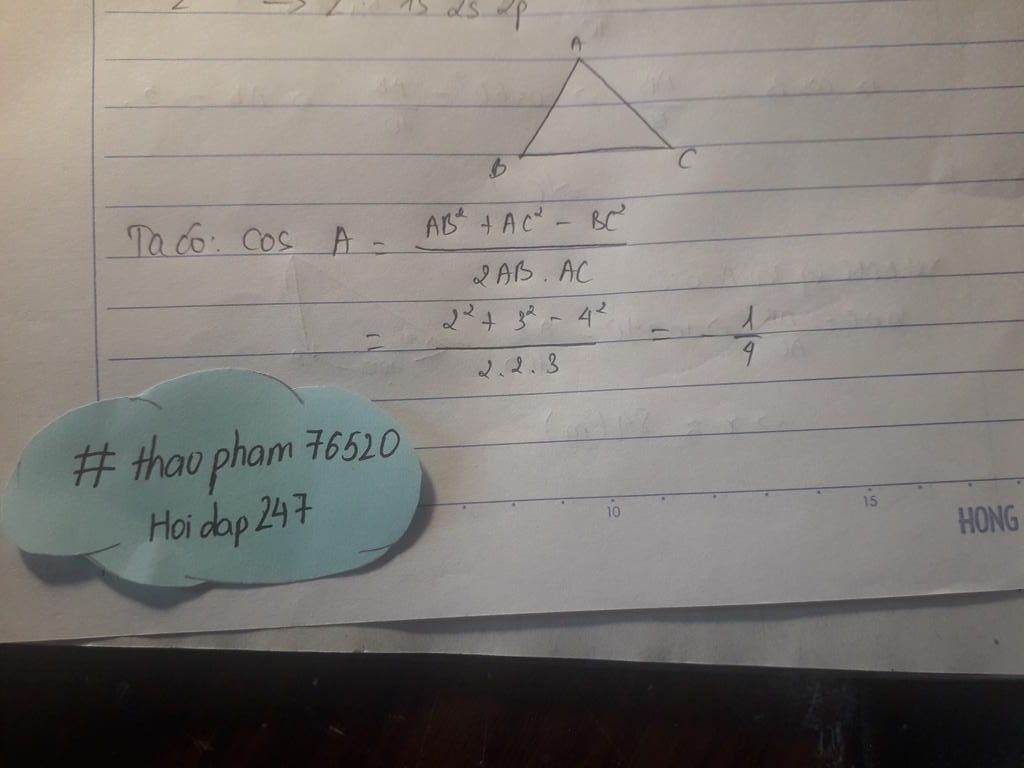 1s 2s 2p
A
B C
Ta có: cos A = (AB² + AC² - BC²) / (2AB . AC)
= (2² + 3² - 4²) / (2.2.3) = - 1/4
# thaophạm 76520
Hoidap 247
10 15
HONG